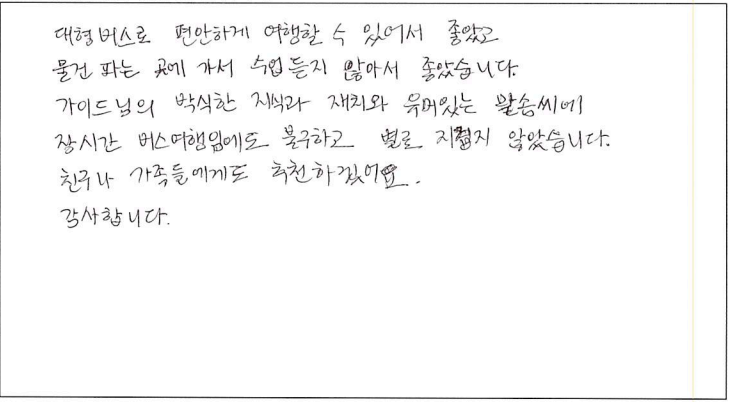 대형버스로 편안하게 여행할 수 있어서 좋았고
물건 파는 곳에 가서 수업 듣지 않아서 좋았습니다.
가이드님의 박식한 지식과 재치와 유머있는 말솜씨에
장시간 버스여행임에도 불구하고 별로 지겹지 않았습니다.
친구나 가족들에게도 추천하겠어요.
감사합니다.